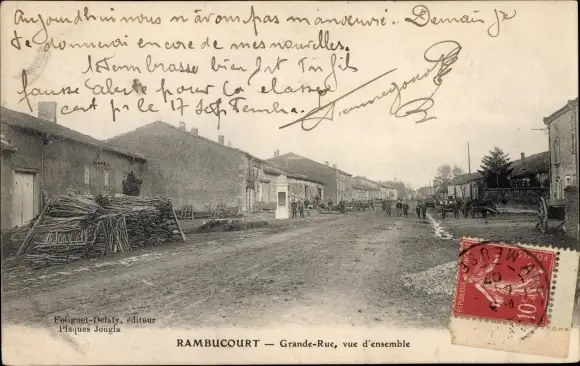 Aujourd'hui nous n'avons pas manoeuvré. Demain je
te donnerai encore de mes nouvelles.
T'embrasse bien fort Ton fils
fausse Alerte pour la classe
c'est pr le 17 Septembre.
Poliguet-Delaty, éditeur
Plaques Jougla
RAMBUCOURT — Grande-Rue, vue d'ensemble
10